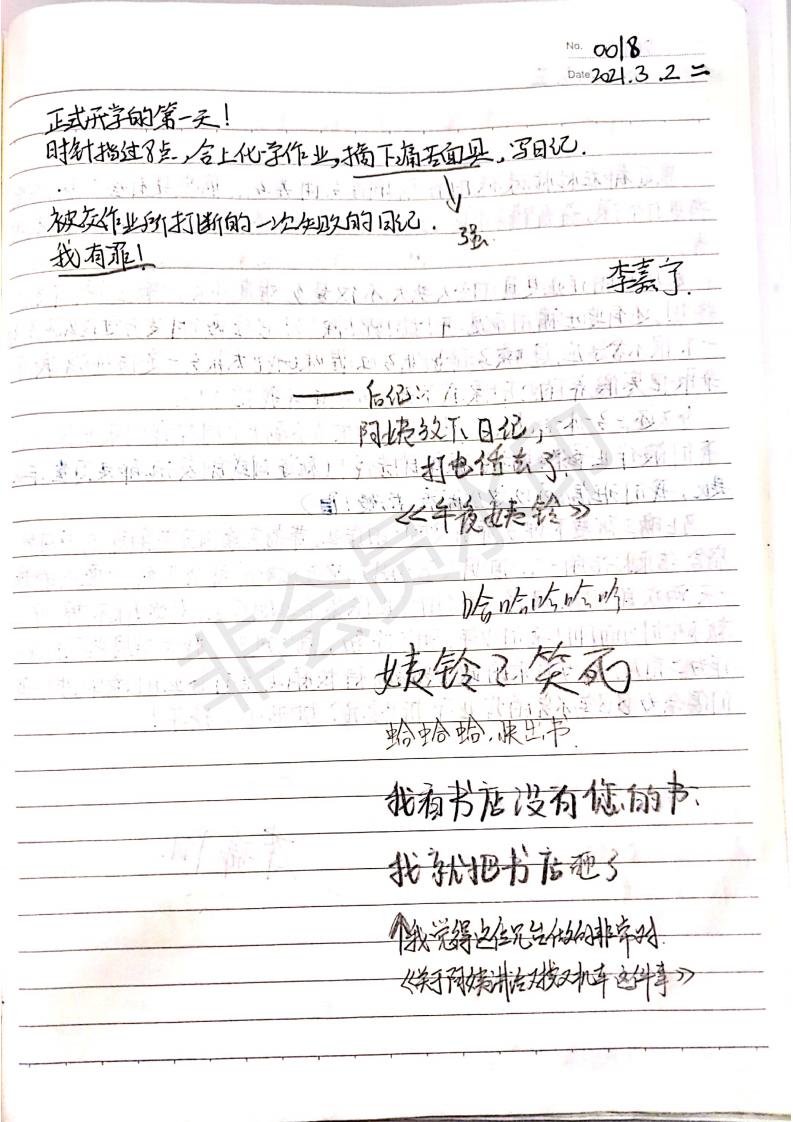 No. 0018
Date 2021.3.2 二
正式开学的第一天！
时针指过8点，合上化学作业，摘下痛苦面具，写日记．
被交作业所打断的一次失败的日记．
↓
强
我有罪！
李嘉宁．
—— 后纪：
阿姨放下日记，
打电话去了
《午夜姨铃》
哈哈哈哈哈
姨铃已笑死
蛤蛤蛤，快出书
我看书店没有您的书、
我就把书店砸了
↑我觉得这位兄台做的非常对．
《关于阿姨讲台对接双机车这件事》
非会员水印